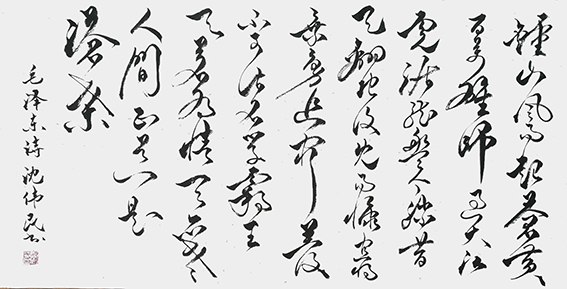 鍾山風雨起蒼黄
百万雄師過大江
虎踞龙盤今勝昔
天翻地覆慨而慷宜將
剩勇追窮寇
不可沽名学霸王
天若有情天亦老
人間正道是
滄桑
毛泽东诗 沈伟民书